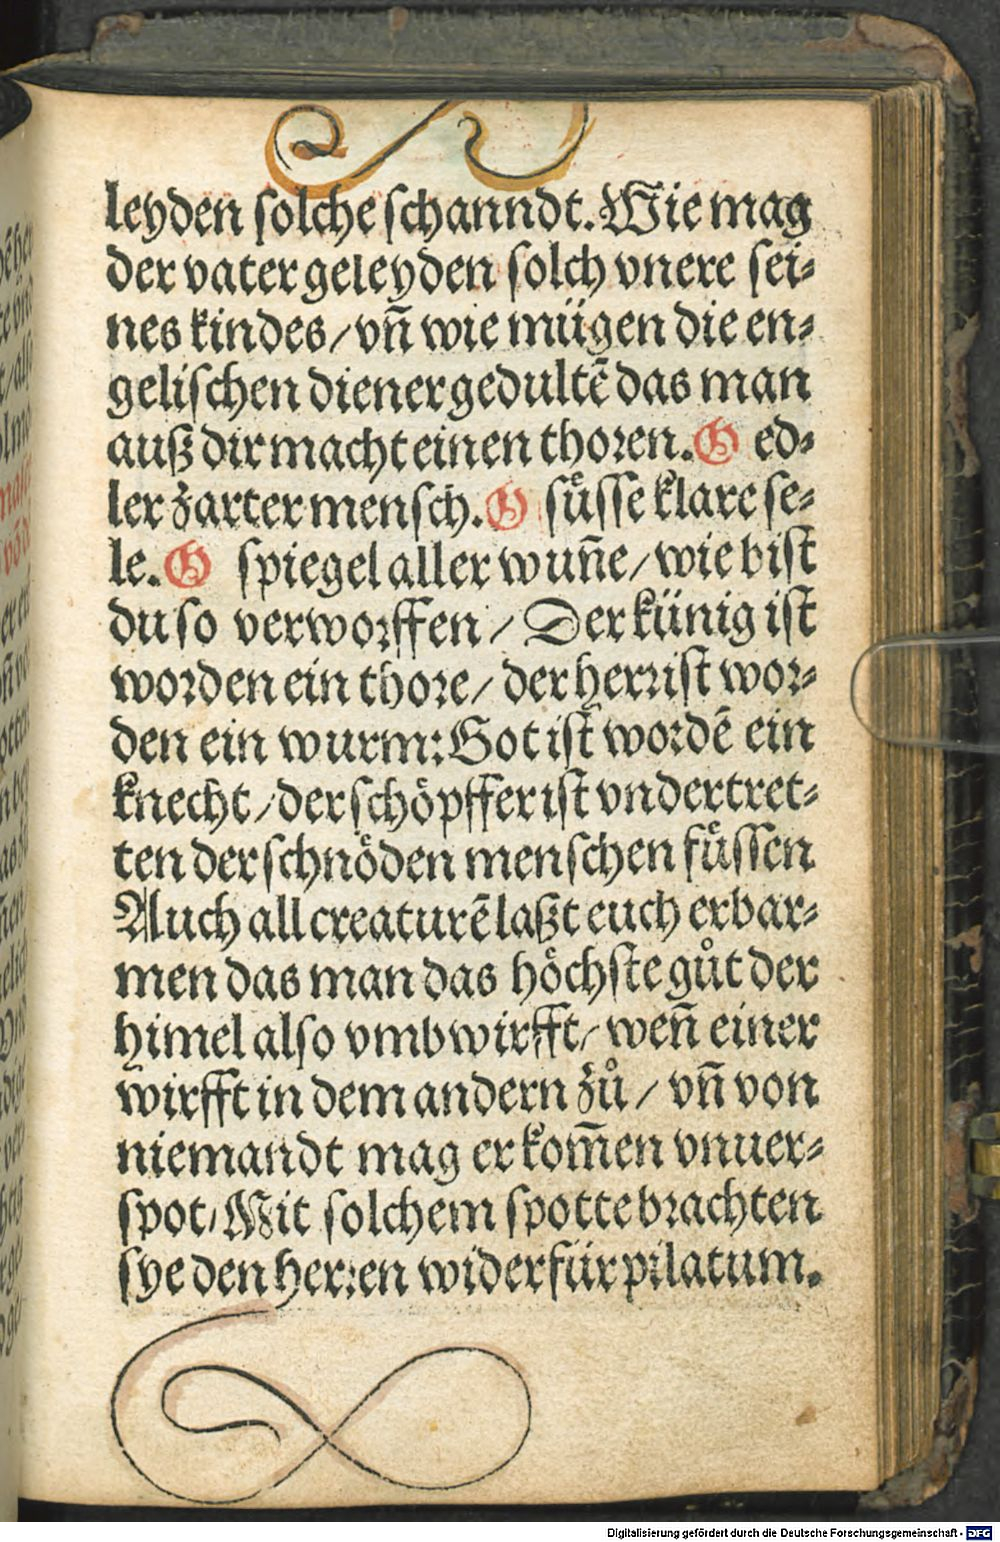 leyden solche schanndt. Wie mag
der vater geleyden solch vnere sei⸗
nes kindes/ vñ wie mügen die en⸗
gelischen diener gedultẽ das man
auß dir macht einen thoren. O ed⸗
ler zarter mensch. O sůsse klare se⸗
le. O spiegel aller wuñe/ wie bist
du so verworffen/ Der künig ist
worden ein thore/ der herr ist wor⸗
den ein wurm: Got ist wordẽ ein
knecht/ der schöpffer ist vndertret⸗
ten der schnöden menschen fůssen
Auch all creaturẽ laßt euch erbar⸗
men das man das höchste gůt der
himel also vmbwirfft/ weñ einer
wirfft in dem andern zů/ vñ von
niemandt mag er kom̃en vnuer⸗
spot/ Mit solchem spotte brachten
sye den herren wider für pilatum.
Digitalisierung gefördert durch die Deutsche Forschungsgemeinschaft - DFG